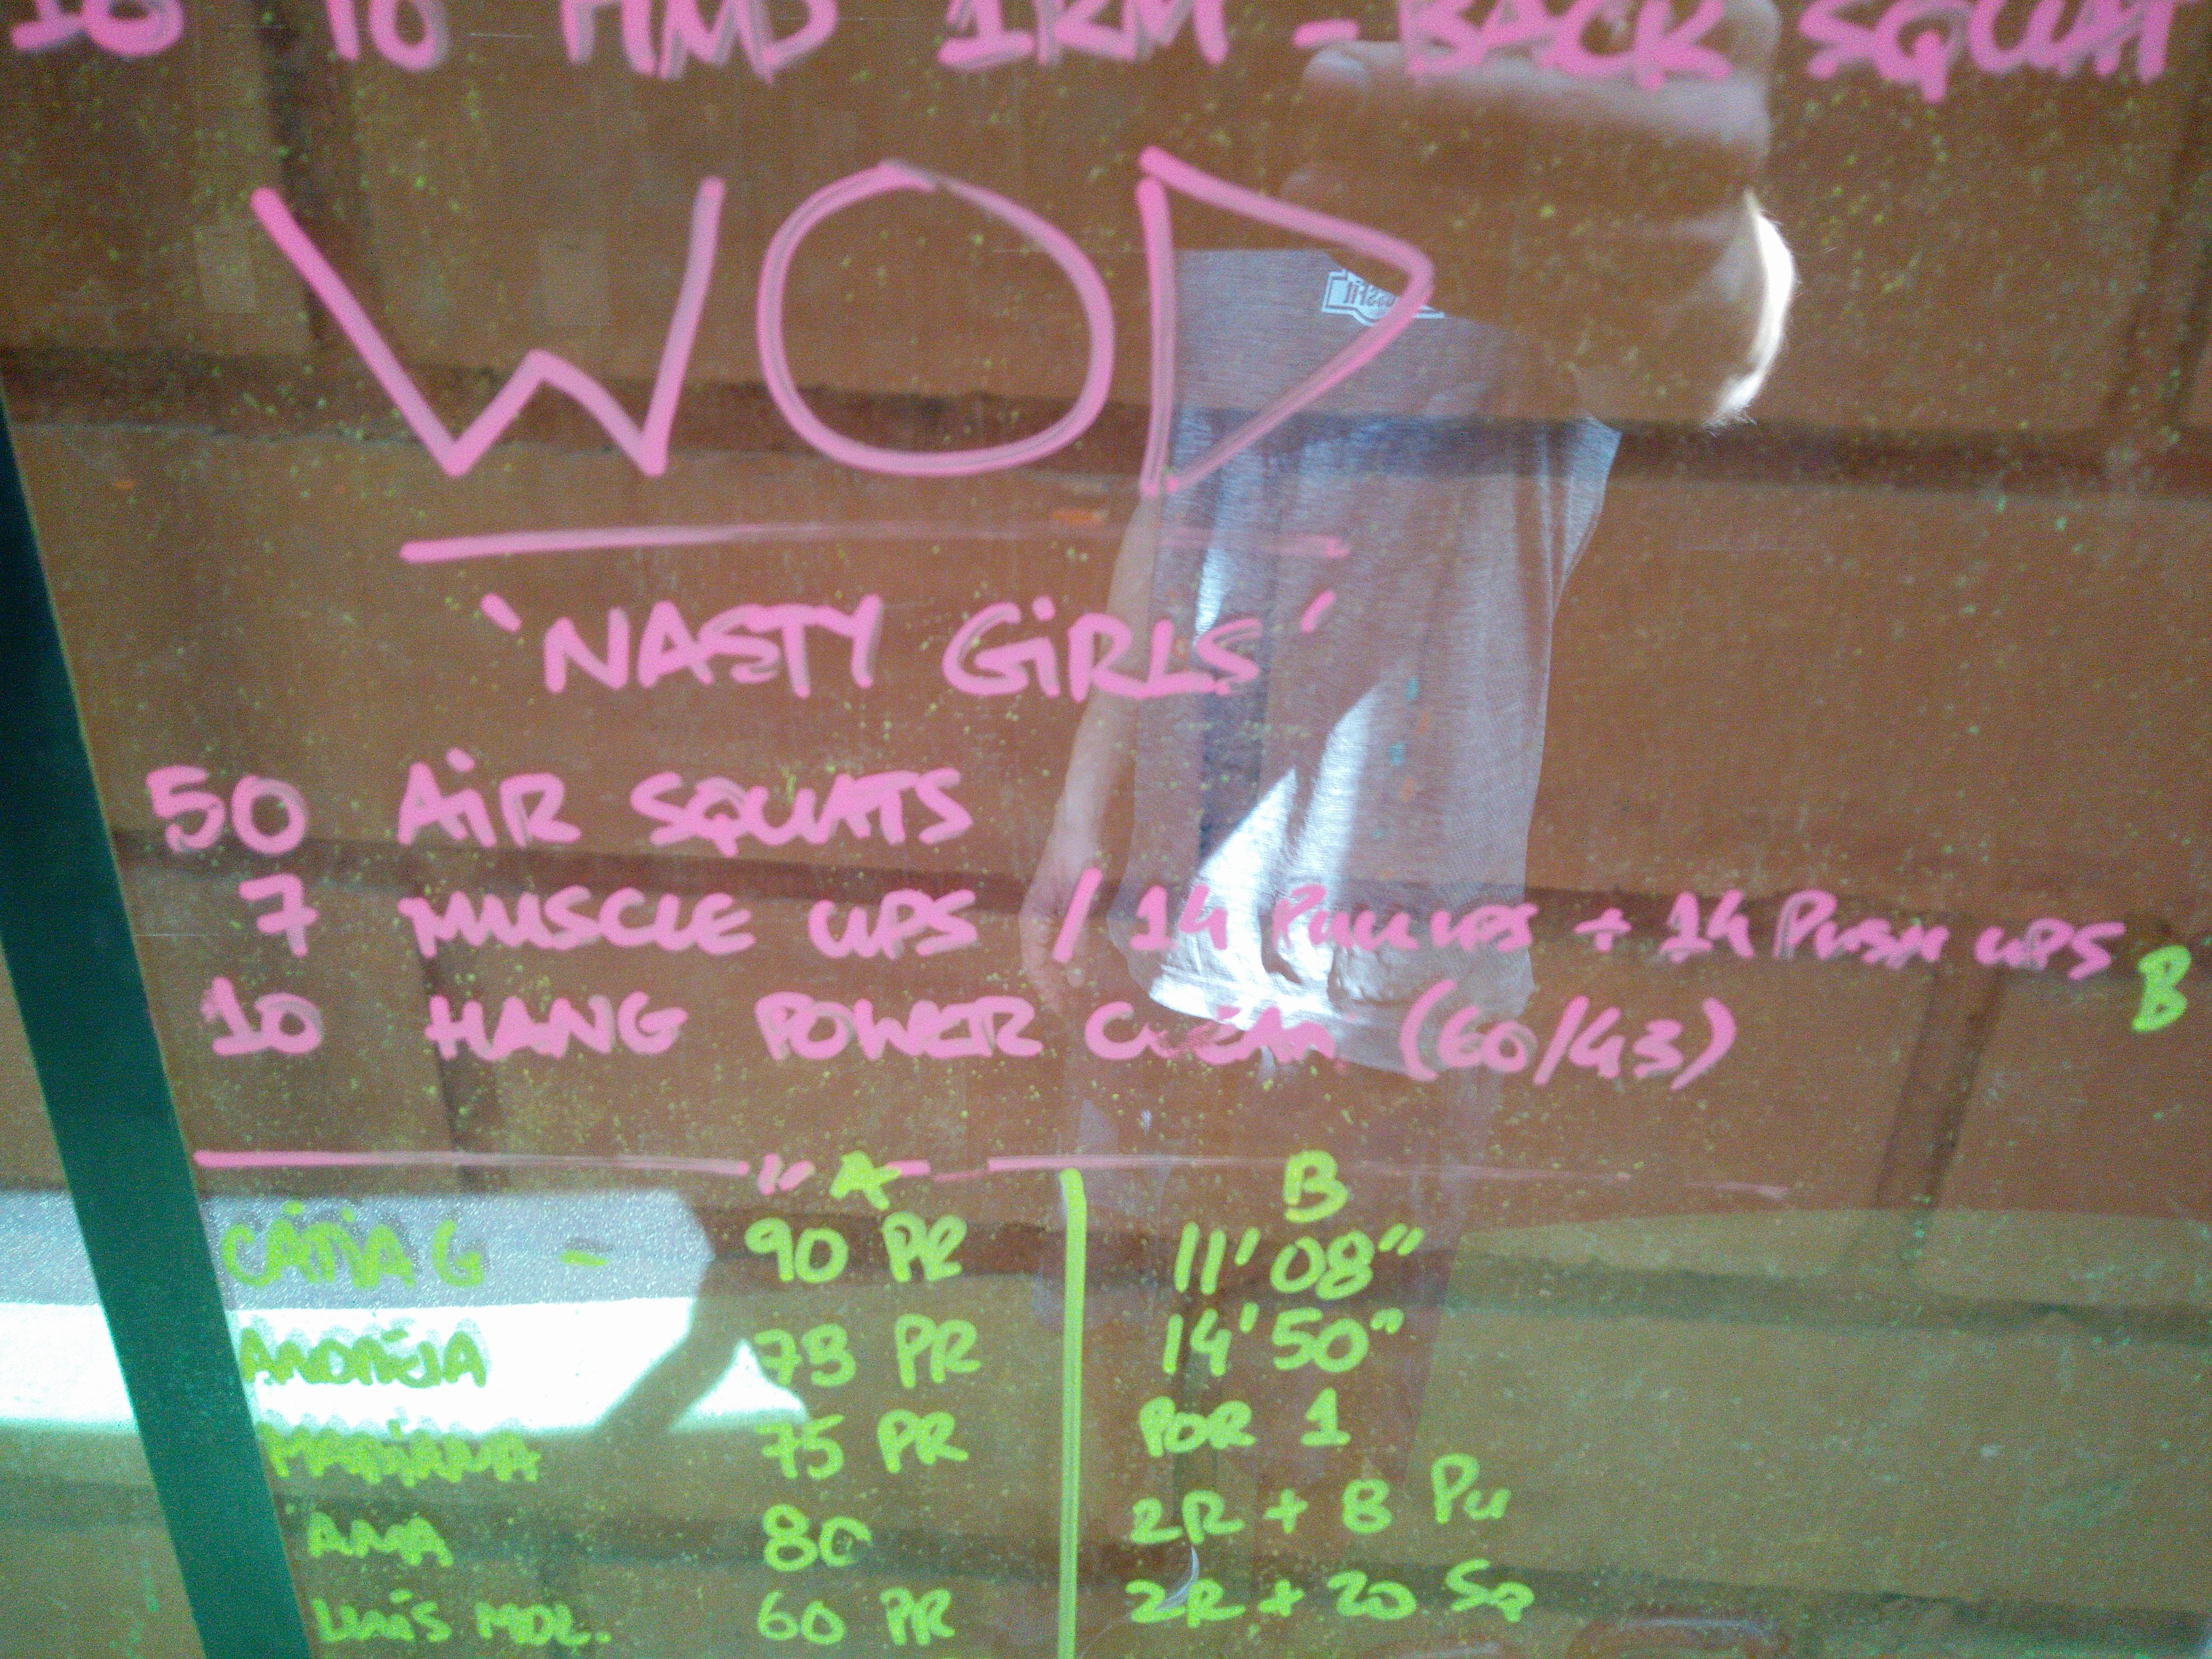 10 TO FIND 1RM - BACK SQUAT
WOD
'NASTY GiRLS'
50 AiR SQUATS
7 MUSCLE UPS / 14 PULL UPS + 14 PUSH UPS
B
10 HANG POWER CLEAN (60/43)
A B
CÁTIA G - 90 PR 11'08"
ANDRÉIA 73 PR 14'50"
MARiANA 75 PR POR 1
ANA 80 2R + 8 PU
LUiS MOL. 60 PR 2R + 20 SQ